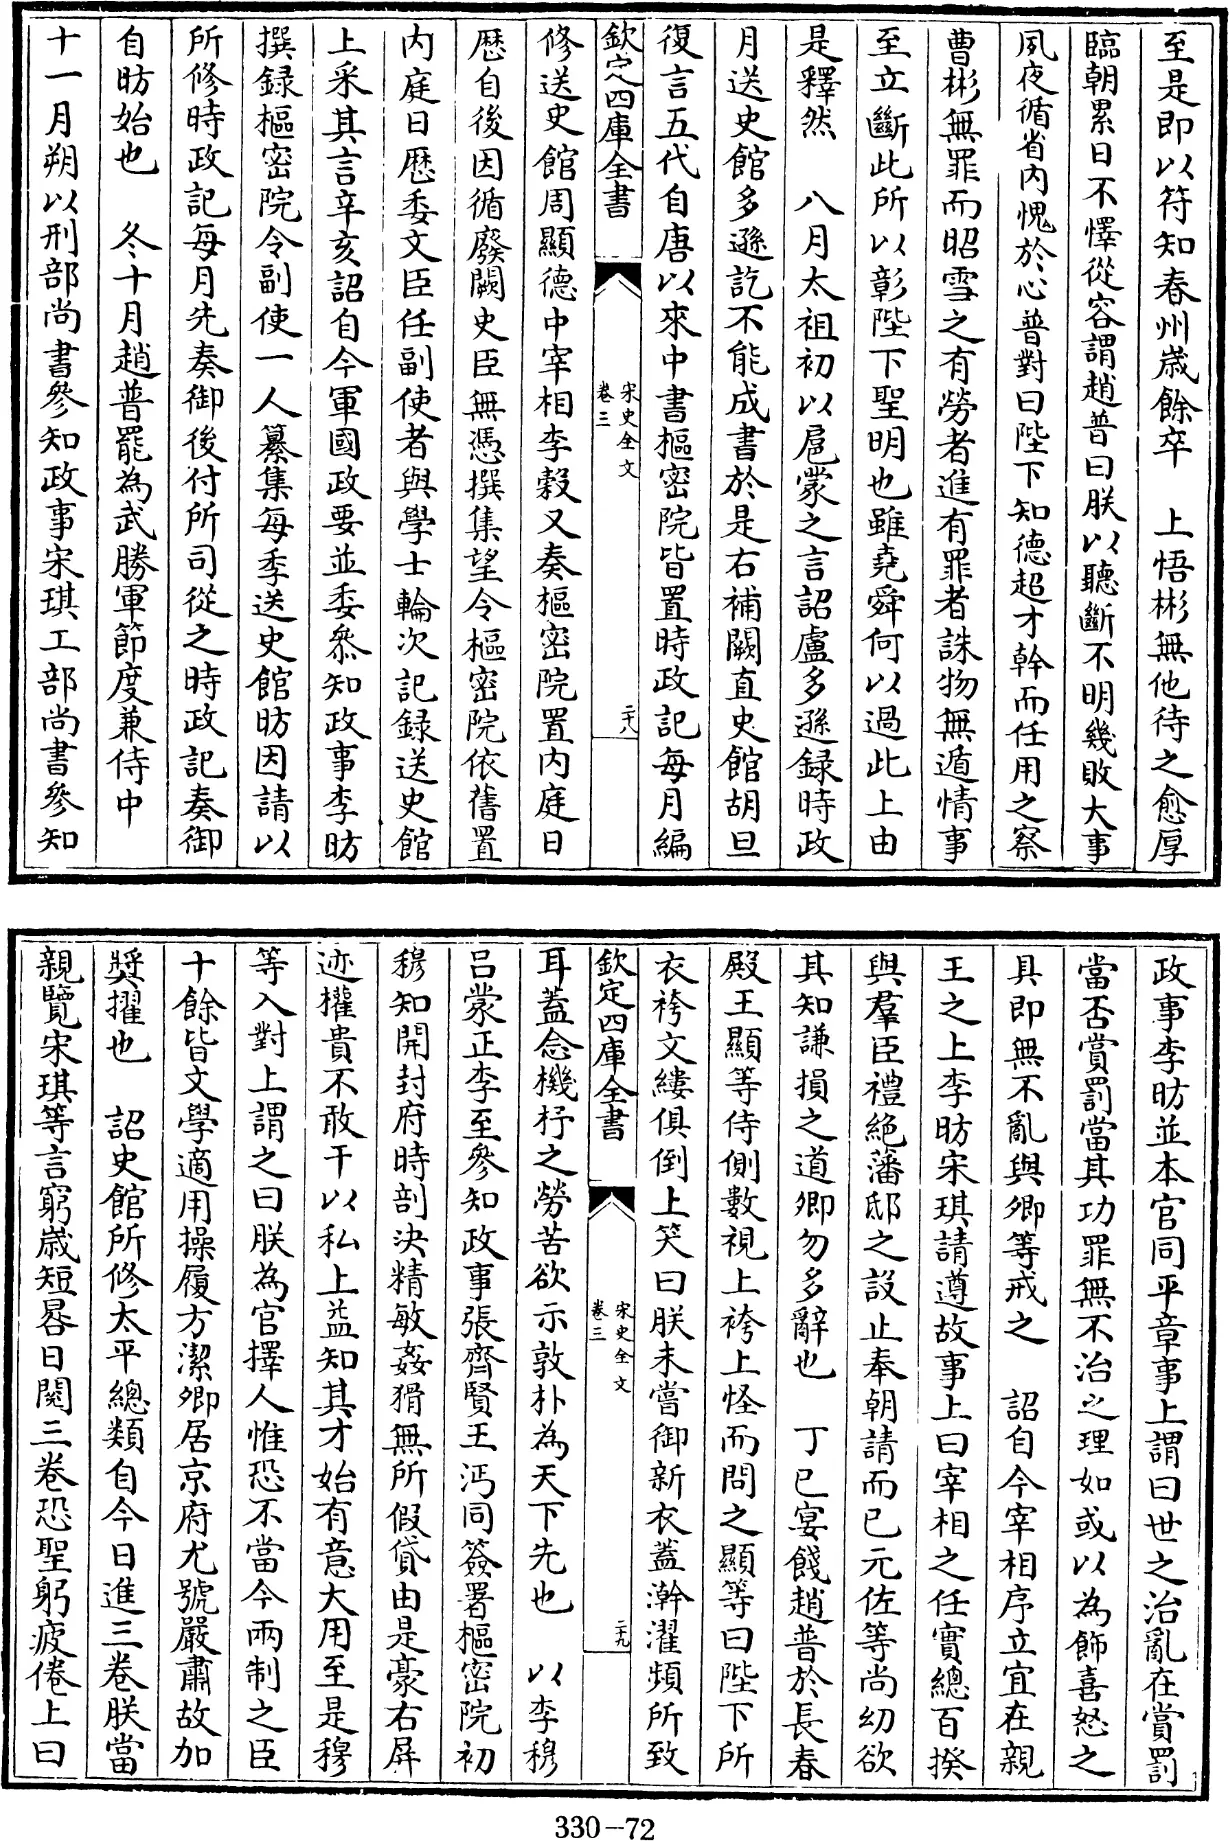 至是即以符知春州歲餘卒　上悟彬無他待之愈厚
臨朝累日不懌從容謂趙普曰朕以聽斷不明幾敗大事
夙夜循省内愧於心普對曰陛下知德超才幹而任用之察
曹彬無罪而昭雪之有勞者進有罪者誅物無遁情事
至立斷此所以彰陛下聖明也雖堯舜何以過此上由
是釋然　八月太祖初以扈蒙之言詔盧多遜録時政
月送史館多遜訖不能成書於是右補闕直史館胡旦
復言五代自唐以來中書樞密院皆置時政記每月編
欽定四庫全書
宋史全文
卷三
二十八
修送史館周顯德中宰相李穀又奏樞密院置内庭日
歴自後因循廢闕史臣無憑撰集望令樞密院依舊置
内庭日歴委文臣任副使者與學士輪次記録送史館
上采其言辛亥詔自今軍國政要並委叅知政事李昉
撰録樞密院令副使一人纂集每季送史館昉因請以
所修時政記每月先奏御後付所司從之時政記奏御
自昉始也　冬十月趙普罷為武勝軍節度兼侍中
十一月朔以刑部尚書參知政事宋琪工部尚書參知
政事李昉並本官同平章事上謂曰世之治亂在賞罰
當否賞罰當其功罪無不治之理如或以為飾喜怒之
具即無不亂與卿等戒之　詔自今宰相序立宜在親
王之上李昉宋琪請遵故事上曰宰相之任實總百揆
與羣臣禮絶藩邸之設止奉朝請而已元佐等尚幼欲
其知謙損之道卿勿多辭也　丁巳宴餞趙普於長春
殿王顯等侍側數視上袴上怪而問之顯等曰陛下所
衣袴文縷俱倒上笑曰朕未嘗御新衣蓋澣濯頻所致
欽定四庫全書
宋史全文
卷三
二十九
耳蓋念機杼之勞苦欲示敦朴為天下先也　以李穆
吕蒙正李至參知政事張齊賢王沔同簽署樞密院初
穆知開封府時剖決精敏姦猾無所假貸由是豪右屏
迹權貴不敢干以私上益知其才始有意大用至是穆
等入對上謂之曰朕為官擇人惟恐不當今兩制之臣
十餘皆文學適用操履方潔卿居京府尤號嚴肅故加
奬擢也　詔史館所修太平總類自今日進三卷朕當
親覽宋琪等言窮歲短晷日閲三卷恐聖躬疲倦上曰
330—72